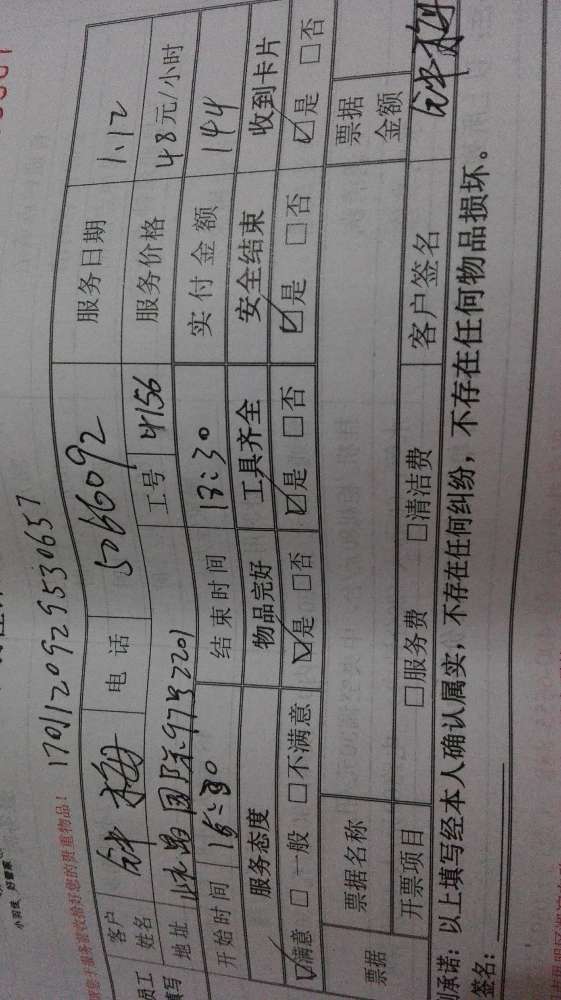 17011209295530657
您于服务前收拾好您的贵重物品！
客户 钟梅 电话 5066092 服务日期 1.12
员工 姓名
填写 地址 国际 工号 4156 服务价格 48元/小时
开始时间 15:30 结束时间 18:30 实付金额 144
服务态度 物品完好 工具齐全 安全结束 收到卡片
☑满意 □一般 □不满意 ☑是 □否 ☑是 □否 ☑是 □否 ☑是 □否
票据 票据名称 票据金额
开票项目 □服务费 □清洁费 客户签名 钟梅
承诺：以上填写经本人确认属实，不存在任何纠纷，不存在任何物品损坏。
签名：